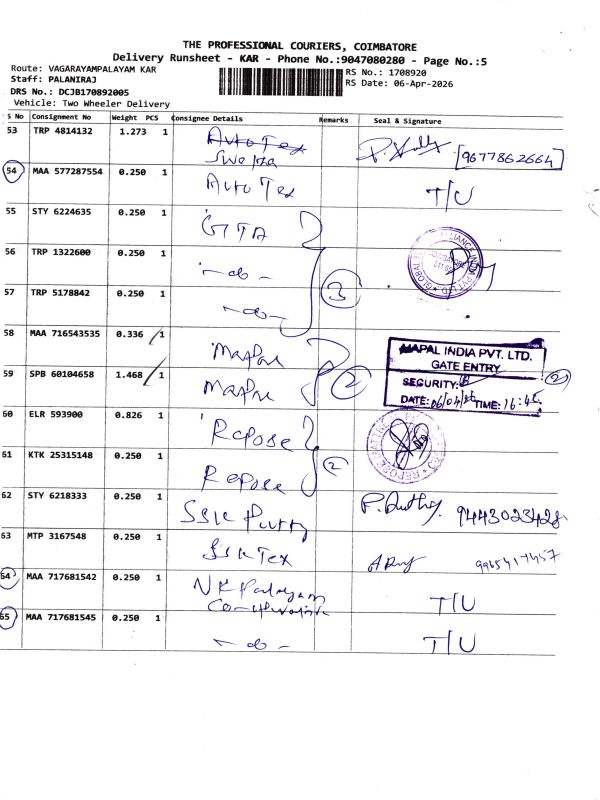 THE PROFESSIONAL COURIERS, COIMBATORE
Delivery Runsheet - KAR - Phone No.:9047080280 - Page No.:5
Route: VAGARAYAMPALAYAM KAR
RS No.: 1708920
Staff: PALANIRAJ
RS Date: 06-Apr-2026
DRS No.: DCJB170892005
Vehicle: Two Wheeler Delivery
S No Consignment No Weight PCS Consignee Details Remarks Seal & Signature
53 TRP 4814132 1.273 1 Auto Tex [9677862664]
54 MAA 577287554 0.250 1 Auto Tex T/U
55 STY 6224635 0.250 1 GTA
56 TRP 1322600 0.250 1 -do-
57 TRP 5178842 0.250 1 -do- 3
58 MAA 716543535 0.336 1 Mapal
MAPAL INDIA PVT. LTD.
GATE ENTRY
SECURITY:
DATE: 06/04/26 TIME: 16:45
59 SPB 60104658 1.468 1 Mapal 2 2
60 ELR 593900 0.826 1 Repose
61 KTK 25315148 0.250 1 Repose 2
62 STY 6218333 0.250 1 SSK Putty 9443023428
63 MTP 3167548 0.250 1 SSK Tex 9965417457
64 MAA 717681542 0.250 1 N K Palayam T/U
65 MAA 717681545 0.250 1 -do- T/U